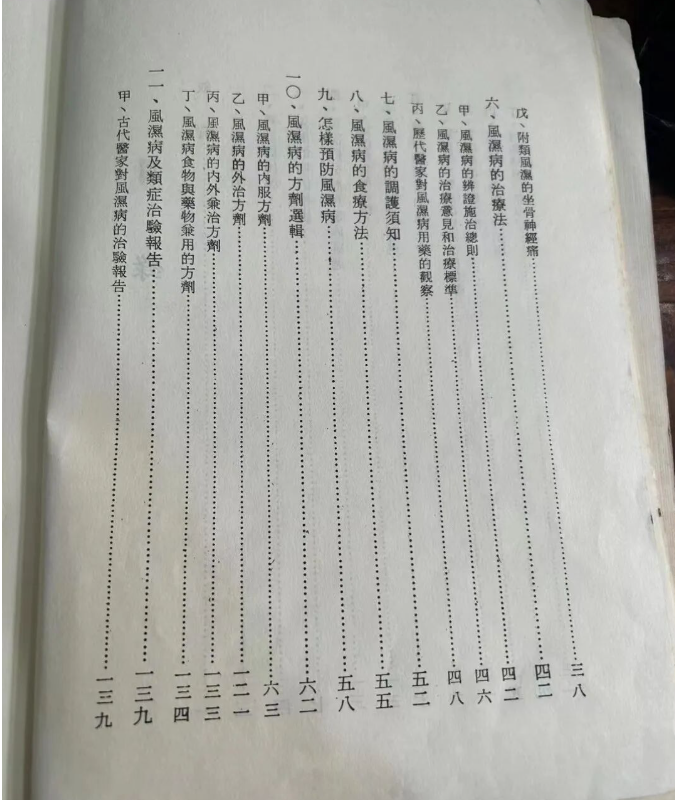 戊、附類風濕的坐骨神經痛……三八
六、風濕病的治療法……四二
甲、風濕病的辨證施治總則……四二
乙、風濕病的治療意見和治療標準……四六
丙、歷代醫家對風濕病用藥的觀察……四八
七、風濕病的調護須知……五二
八、風濕病的食療方法……五五
九、怎樣預防風濕病……五八
一〇、風濕病的方劑選輯……六二
甲、風濕病的內服方劑……六三
乙、風濕病的外治方劑……一二一
丙、風濕病的內外兼治方劑……一三三
丁、風濕病食物與藥物兼用的方劑……一三四
一一、風濕病及類症治驗報告……一三九
甲、古代醫家對風濕病的治驗報告……一三九